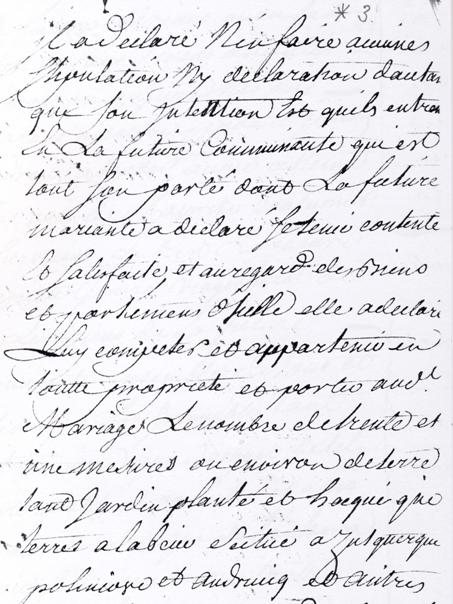 * 3.
il a déclaré N'en faire aucunes
Stipulation Ny déclaration d'autan
que Son Intention Est quils entron
En La future Communauté qui est
tout Son porté dont La future
mariante a déclaré Se tenir contente
Et Satisfaite et au regard des biens
et portemens d'Icelle elle a déclaré
Luy competer et appartenir en
toutte propriété et porter aud.
Mariage Le nombre de trente et
une mesures ou environ de terre
tant Jardin planté et hacqué que
terres a labeur Situé a Zutquerque
polincove et audruicq Et autres